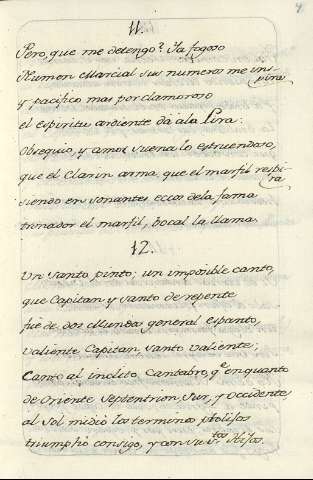 11.
Pero, que me detengo? Ya fogoso
Numen Marcial sus numeros me inspira
y pacifico mas por clamoroso
el espiritu ardiente dá ala Lira:
Obsequio, y amor suena lo estruendoso,
que el Clarin arma, que el marfil respira
siendo en sonantes eccos dela fama
trinador el marfil, bocal la llama.
12.
Un Santo pinto; un imposible canto,
que Capitan y Santo de repente
fue de dos Mundos general espanto,
valiente Capitan, Santo valiente;
Canto al inclito Cantabro, qe en quanto
de Oriente Septentrion, Sur, y Occidente
al Sol midió los terminos prolifos
triumphó consigo, y con su